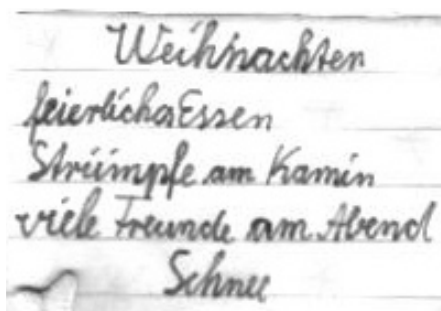 Weihnachten
feierliches Essen
Strümpfe am Kamin
viele Freunde am Abend
Schnee